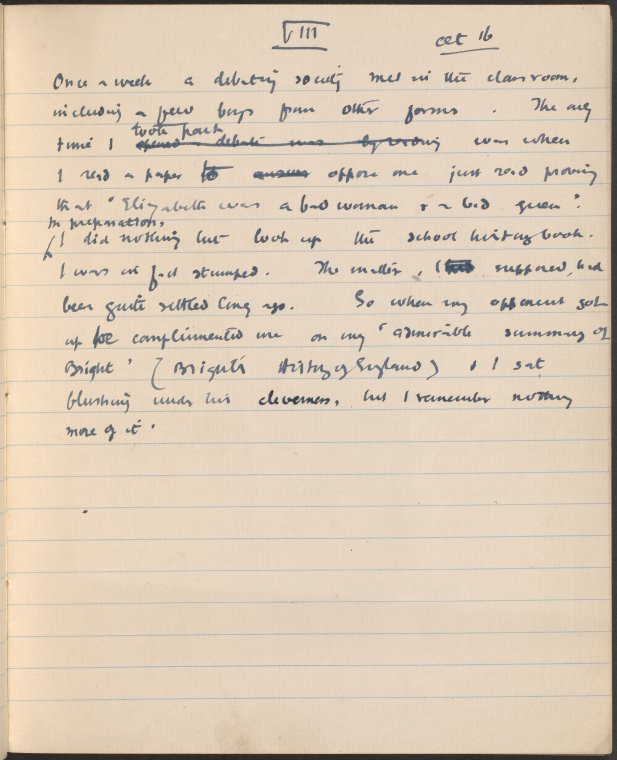 VIII
aet 16
Once a week a debating society met in the classroom,
including a few boys from other forms. The only
took part
time I opened a debate was by reading was when
I read a paper to answer oppose one just read proving
that "Elizabeth was a bad woman & a bad queen".
In preparation,
I did nothing but look up the school history book.
I was in fact stumped. The matter, I supposed, had
been quite settled long ago. So when my opponent got
up he complimented me on my 'admirable summary of
Bright' (Bright's History of England) & I sat
blushing under his cleverness, but I remember nothing
more of it.